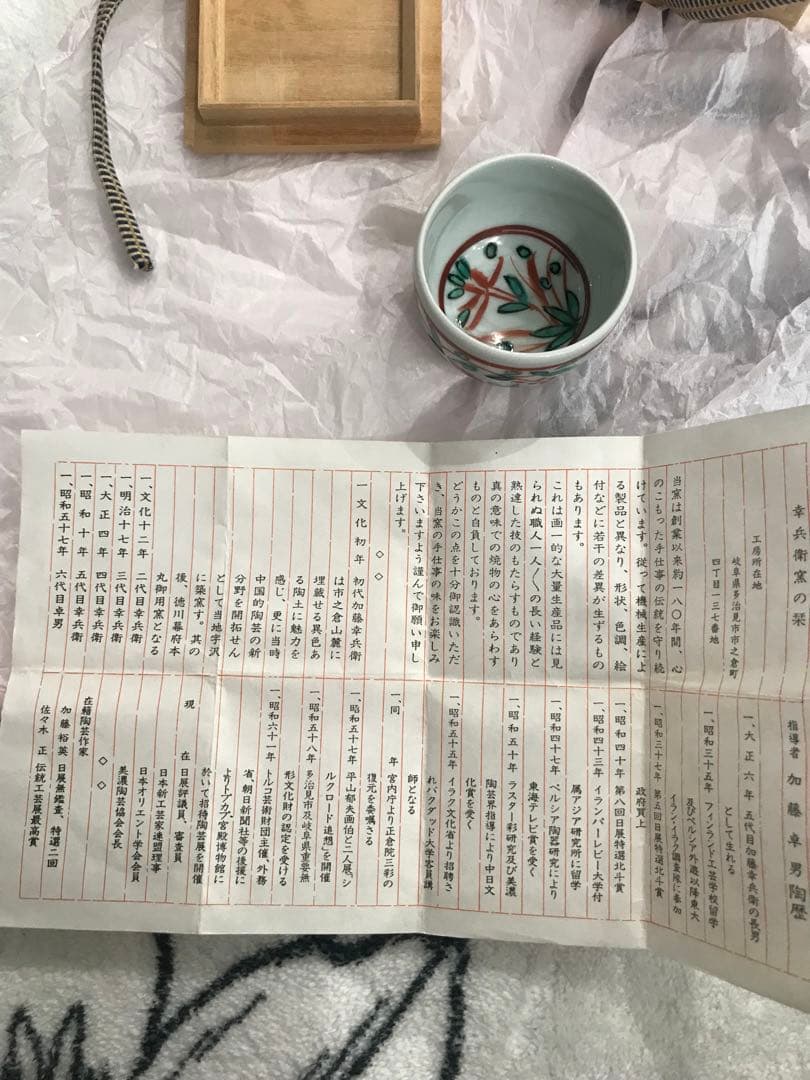 幸兵衛窯の栞
工房所在地
岐阜県多治見市市之倉町
四丁目一三七番地
当窯は創業以来約一八〇年間、心
のこもった手仕事の伝統を守り続
けています。従って機械生産によ
る製品と異なり、形状、色調、絵
付などに若干の差異が生ずるもの
もあります。
これは画一的な大量生産品には見
られぬ職人一人〱の長い経験と
熟達した技のもたらすものであり
真の意味での焼物の心をあらわす
ものと自負しております。
どうかこの点を十分御認識いただ
き、当窯の手仕事の味をお楽しみ
下さいますよう謹んで御願い申し
上げます。
◇◇
一文化初年 初代加藤幸兵衛
は市之倉山麓に
埋蔵せる異色あ
る陶土に魅力を
感じ、更に当時
中国的陶芸の新
分野を開拓せん
として当地字沢
に築窯す。其の
後、徳川幕府本
丸御用窯となる
一、文化十二年 二代目幸兵衛
一、明治十七年 三代目幸兵衛
一、大正四年 四代目幸兵衛
一、昭和十年 五代目幸兵衛
一、昭和五十七年 六代目卓男
指導者 加藤卓男陶歴
一、大正六年 五代目加藤幸兵衛の長男
として生れる
一、昭和三十五年 フィンランド工芸学校留学
及びペルシア外遊以降東大
イラン・イラク調査隊に参加
一、昭和三十七年 第五回日展特選北斗賞
政府買上
一、昭和四十年 第八回日展特選北斗賞
一、昭和四十三年 イランパーレビー大学付
属アジア研究所に留学
一、昭和四十七年 ペルシア陶器研究により
東海テレビ賞を受く
一、昭和五十年 ラスター彩研究及び美濃
陶芸界指導により中日文
化賞を受く
一、昭和五十五年 イラク文化省より招聘さ
れバクダッド大学客員講
師となる
一、同年 宮内庁より正倉院三彩の
復元を委嘱さる
一、昭和五十七年 平山郁夫画伯と二人展「シ
ルクロード追想」を開催
一、昭和五十八年 多治見市及岐阜県重要無
形文化財の認定を受ける
一、昭和六十一年 トルコ芸術財団主催、外務
省、朝日新聞社等の後援に
よりトプカプ宮殿博物館に
於いて招待陶芸展を開催
現在 日展評議員、審査員
日本新工芸家連盟理事
日本オリエント学会会員
美濃陶芸協会会長
◇◇
在籍陶芸作家
加藤裕英 日展無鑑査、特選二回
佐々木正 伝統工芸展最高賞